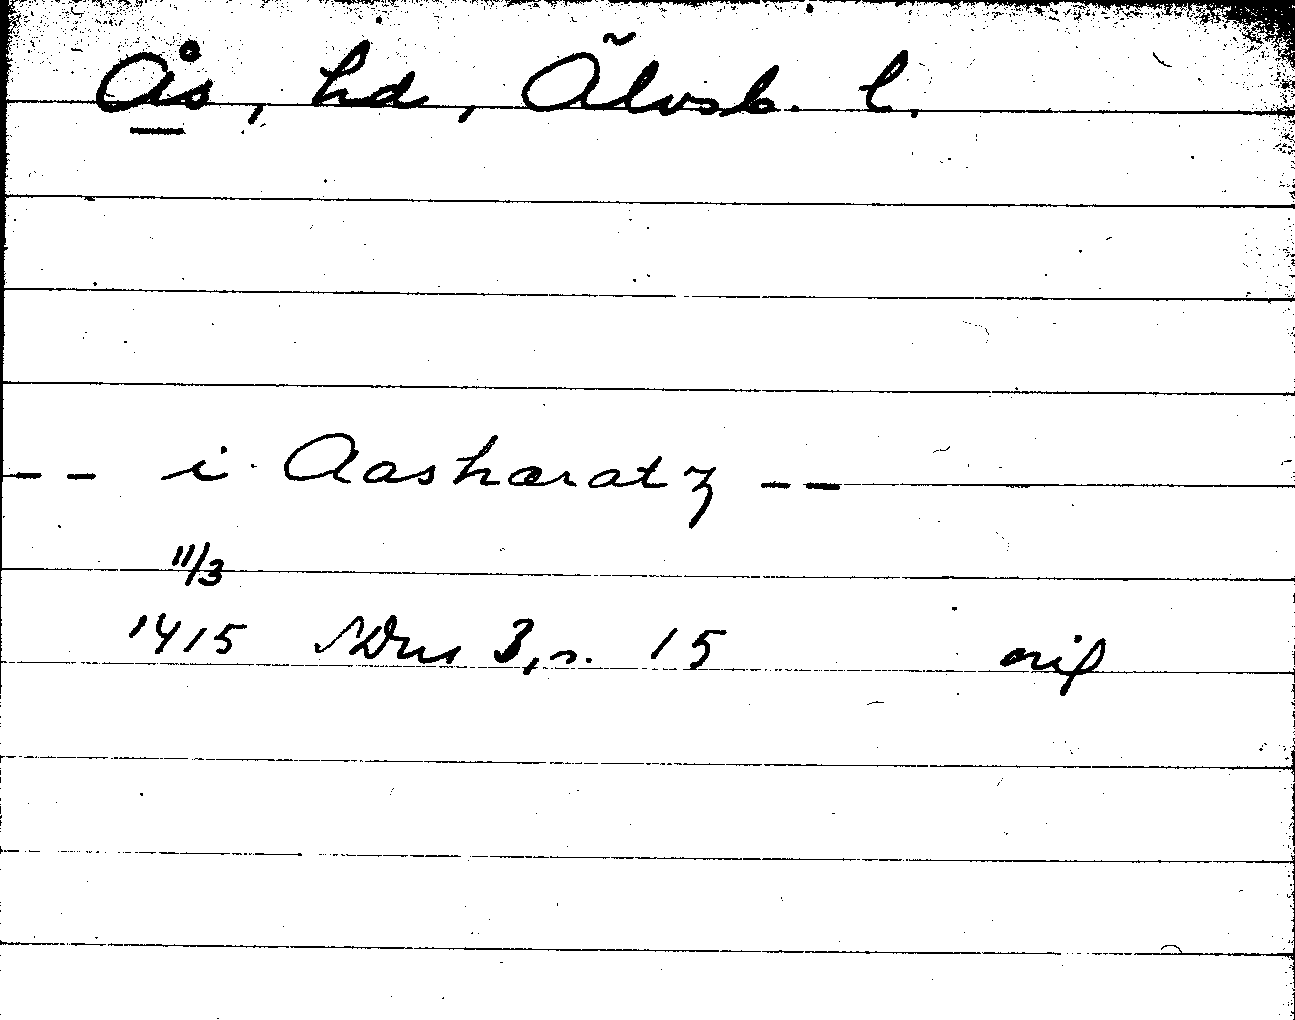 Ås, hd, Älvsb. l.
-- i Aashæratz --
11/3
1415 SDns 3, s. 15 orig